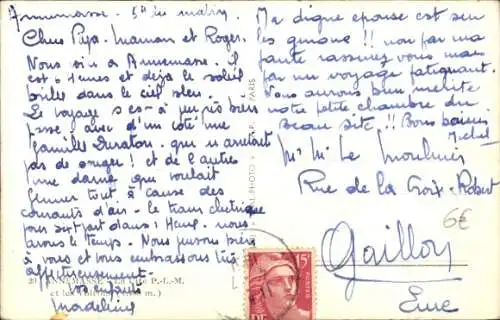 Annemasse - 5h du matin.
Chers Papa - Maman et Roger.
Nous sous à Annemasse. il
est 6 heures et déjà le soleil
brille dans le ciel bleu.
Le voyage s'est à peu près bien
passé avec d'un côté une
famille Duraton. qui n'arrêtait
pas de manger ! et de l'autre
une dame qui voulait
fermer tout à cause des
courants d'air - le train électrique
part dans 1 Heure. nous
avons le temps. Nous pensons bien
à vous et vous embrassons très
affectueusement
vos enfants
Madeleine
Ma digne epouse est sur
les genoux !! non par ma
faute rassurez vous mais
par un voyage fatiguant.
Nous aurons bien mérité
notre petite chambre du
beau site !! Bons baisers
Michel
Mr Me Le Moulnier
Rue de la Croix-Robert
Gaillon
Eure
6€
20 ANNEMASSE - La Gare P.-L.-M.
15F
POSTES